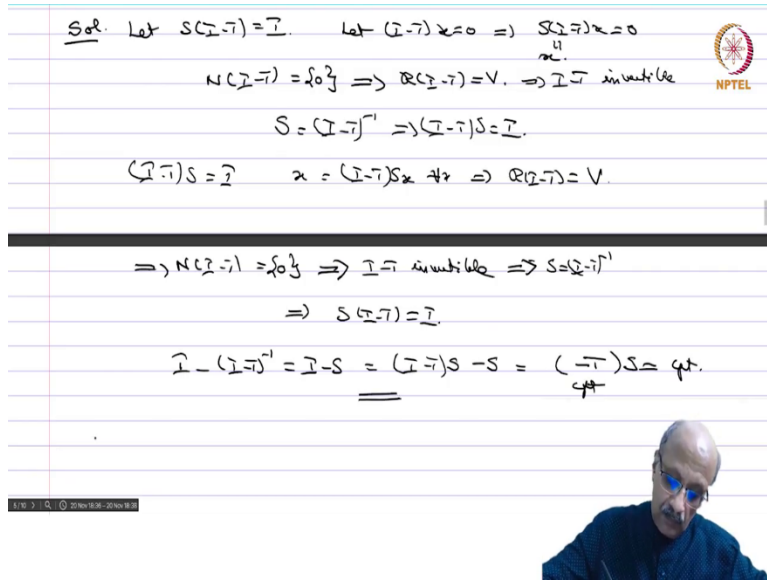 Sol. Let S(I-T)=I. Let (I-T)x=0 => S(I-T)x=0
x
N(I-T)={0} => R(I-T)=V. => I-T invertible
NPTEL
S=(I-T)⁻¹ => (I-T)S=I.
(I-T)S=I x=(I-T)Sx ∀x => R(I-T)=V.
=> N(I-T)={0} => I-T invertible => S=(I-T)⁻¹
=> S(I-T)=I.
I-(I-T)⁻¹=I-S=(I-T)S-S=(-T)S= cpt.
cpt
5/10 20 Nov 18:36 - 20 Nov 18:38